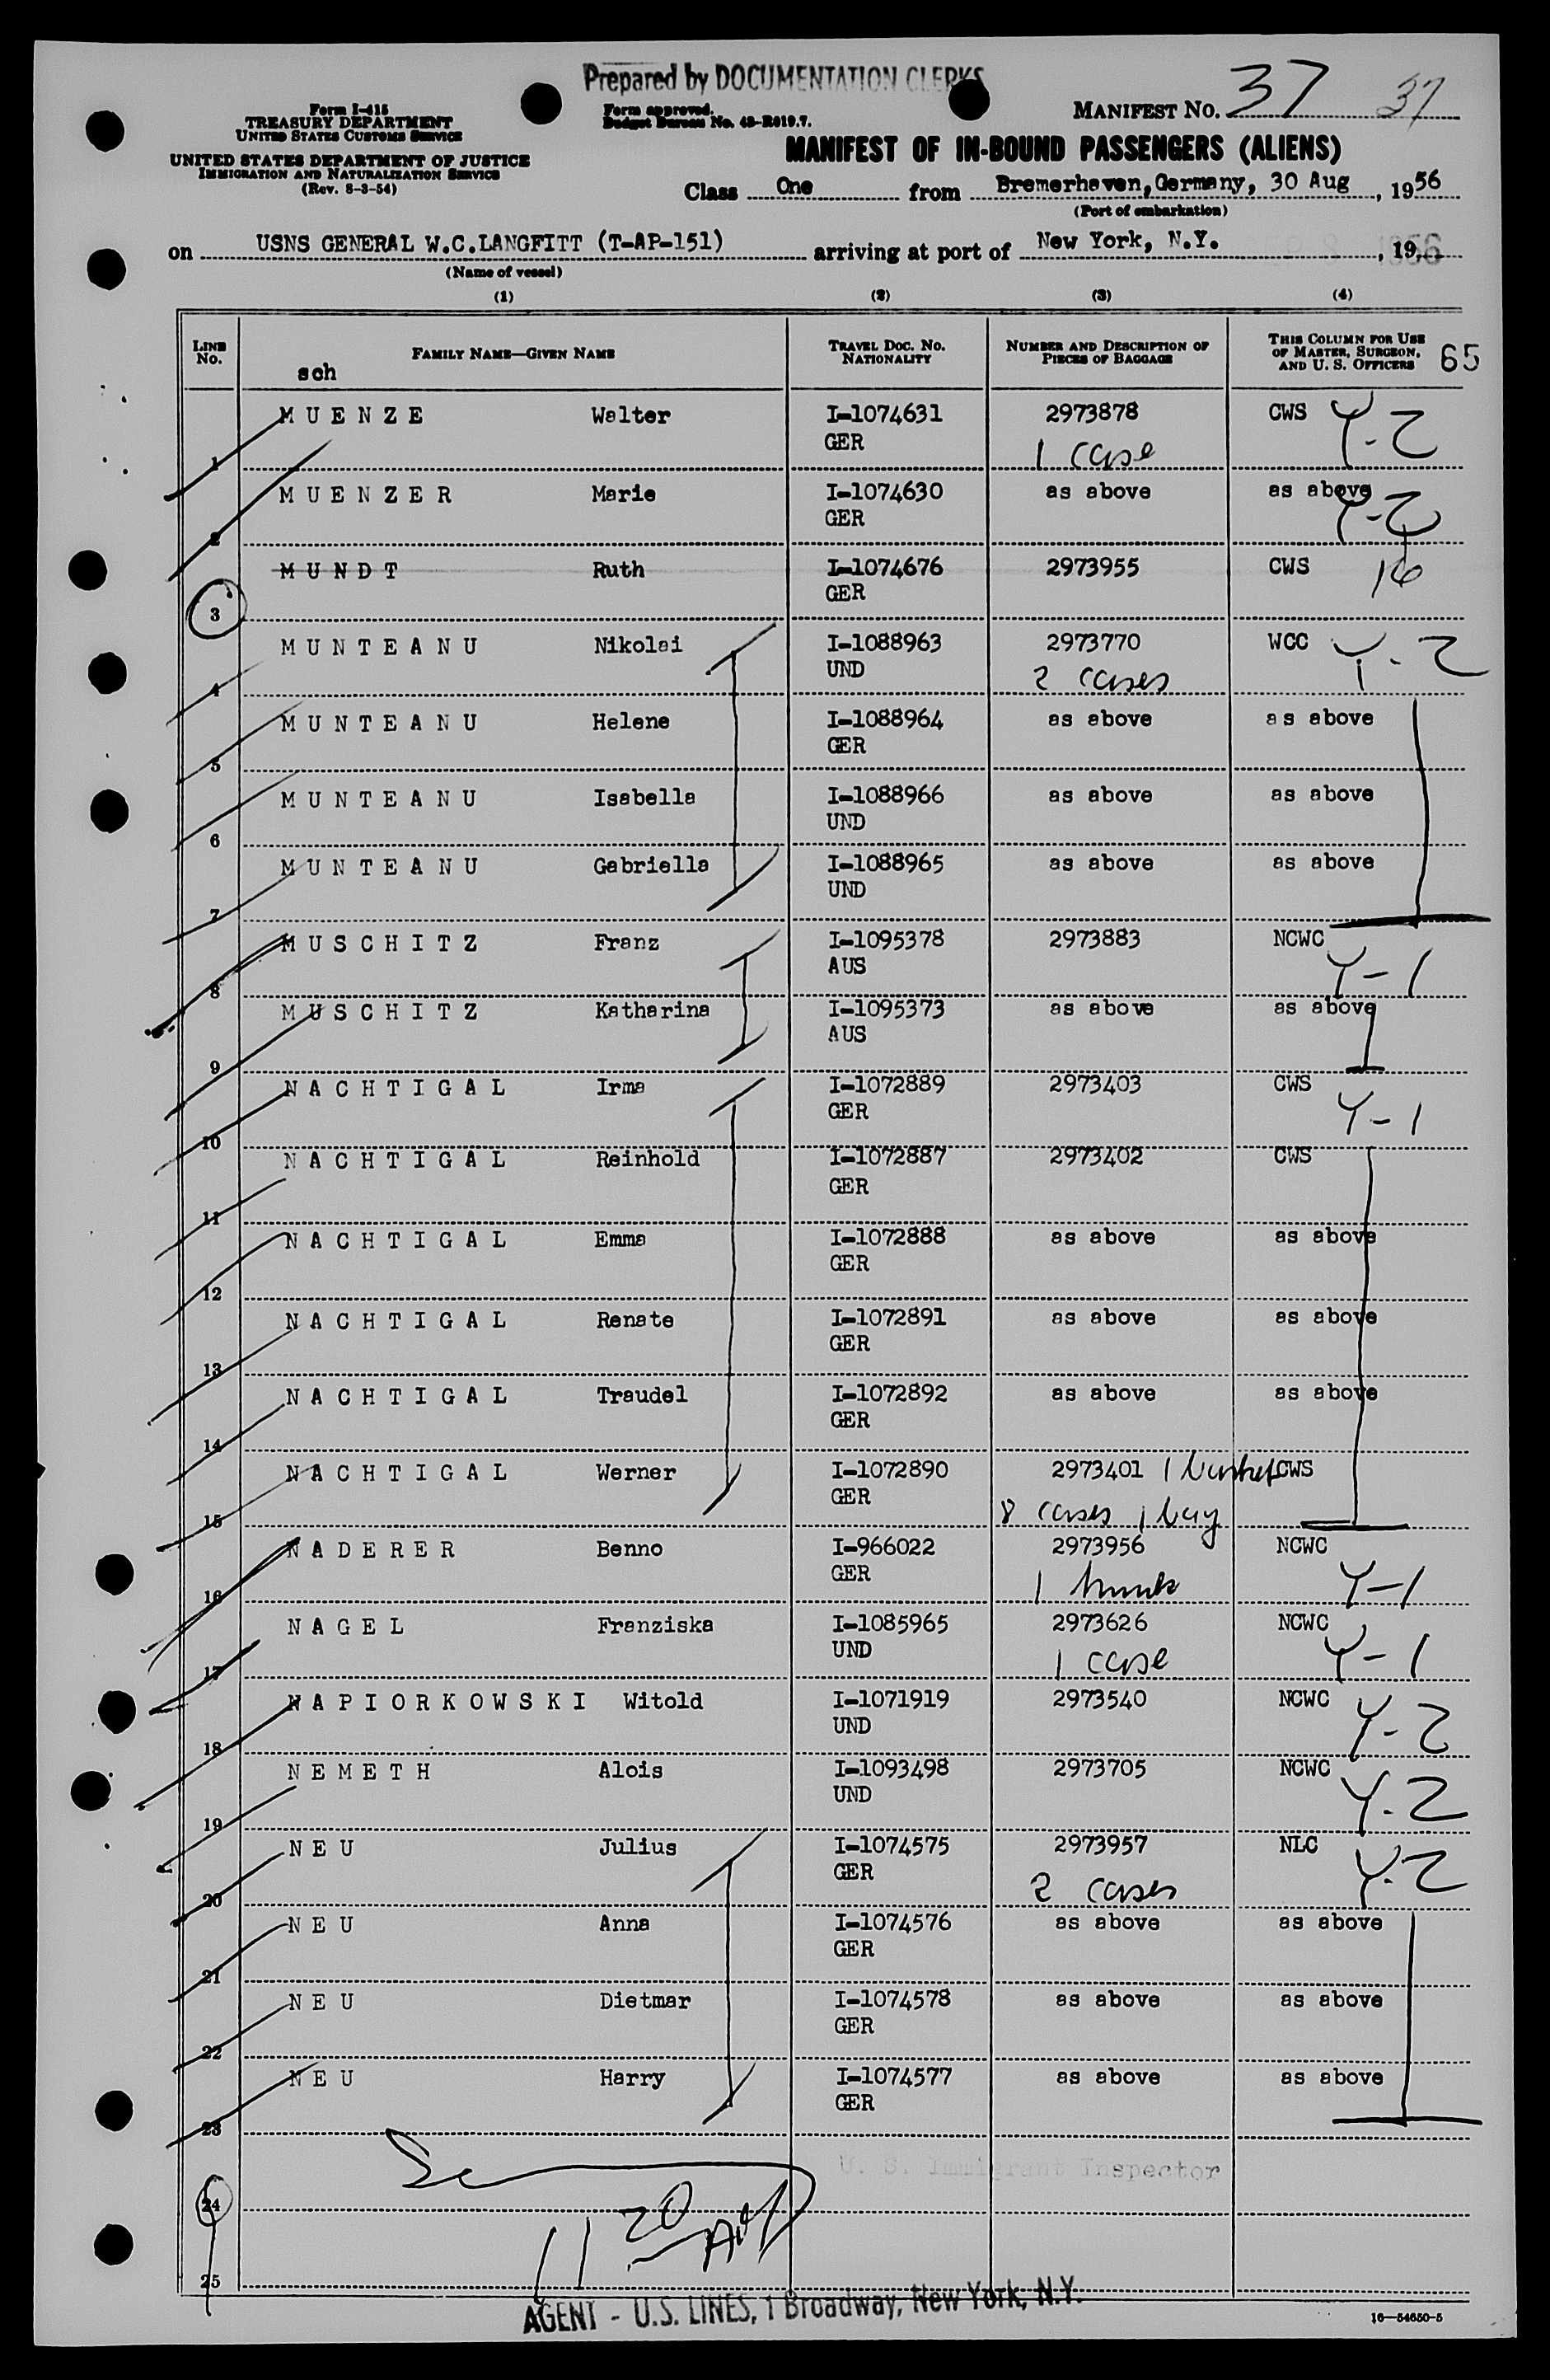 Prepared by DOCUMENTATION CLERKS
Form I-415
TREASURY DEPARTMENT
UNITED STATES CUSTOMS SERVICE
UNITED STATES DEPARTMENT OF JUSTICE
IMMIGRATION AND NATURALIZATION SERVICE
(Rev. 8-3-54)
Form approved.
Budget Bureau No. 43-R019.7.
MANIFEST NO. 37 37
MANIFEST OF IN-BOUND PASSENGERS (ALIENS)
Class One from Bremerhaven, Germany, 30 Aug, 1956
(Port of embarkation)
on USNS GENERAL W.C.LANGFITT (T-AP-151) arriving at port of New York, N.Y., 1956
(Name of vessel)
(1) (2) (3) (4)
LINE No. FAMILY NAME—GIVEN NAME TRAVEL DOC. NO. NATIONALITY NUMBER AND DESCRIPTION OF PIECES OF BAGGAGE THIS COLUMN FOR USE OF MASTER, SURGEON, AND U. S. OFFICERS 65
sch
1 MUENZE Walter I-1074631 GER 2973878 1 case CWS Y-2
2 MUENZER Marie I-1074630 GER as above as above Y-2
3 MUNDT Ruth I-1074676 GER 2973955 CWS 16
4 MUNTEANU Nikolai I-1088963 UND 2973770 2 cases WCC Y-2
5 MUNTEANU Helene I-1088964 GER as above as above
6 MUNTEANU Isabella I-1088966 UND as above as above
7 MUNTEANU Gabriella I-1088965 UND as above as above
8 MUSCHITZ Franz I-1095378 AUS 2973883 NCWC Y-1
9 MUSCHITZ Katharina I-1095373 AUS as above as above
10 NACHTIGAL Irma I-1072889 GER 2973403 CWS Y-1
11 NACHTIGAL Reinhold I-1072887 GER 2973402 CWS
12 NACHTIGAL Emma I-1072888 GER as above as above
13 NACHTIGAL Renate I-1072891 GER as above as above
14 NACHTIGAL Traudel I-1072892 GER as above as above
15 NACHTIGAL Werner I-1072890 GER 2973401 1 8 cases 1 bag CWS
16 NADERER Benno I-966022 GER 2973956 1 trunk NCWC Y-1
17 NAGEL Franziska I-1085965 UND 2973626 1 case NCWC Y-1
18 NAPIORKOWSKI Witold I-1071919 UND 2973540 NCWC Y-2
19 NEMETH Alois I-1093498 UND 2973705 NCWC Y-2
20 NEU Julius I-1074575 GER 2973957 2 cases NLC Y-2
21 NEU Anna I-1074576 GER as above as above
22 NEU Dietmar I-1074578 GER as above as above
23 NEU Harry I-1074577 GER as above as above
U. S. Immigrant Inspector
24
11 20
25
AGENT - U.S. LINES, 1 Broadway, New York, N.Y.
16—54650-5